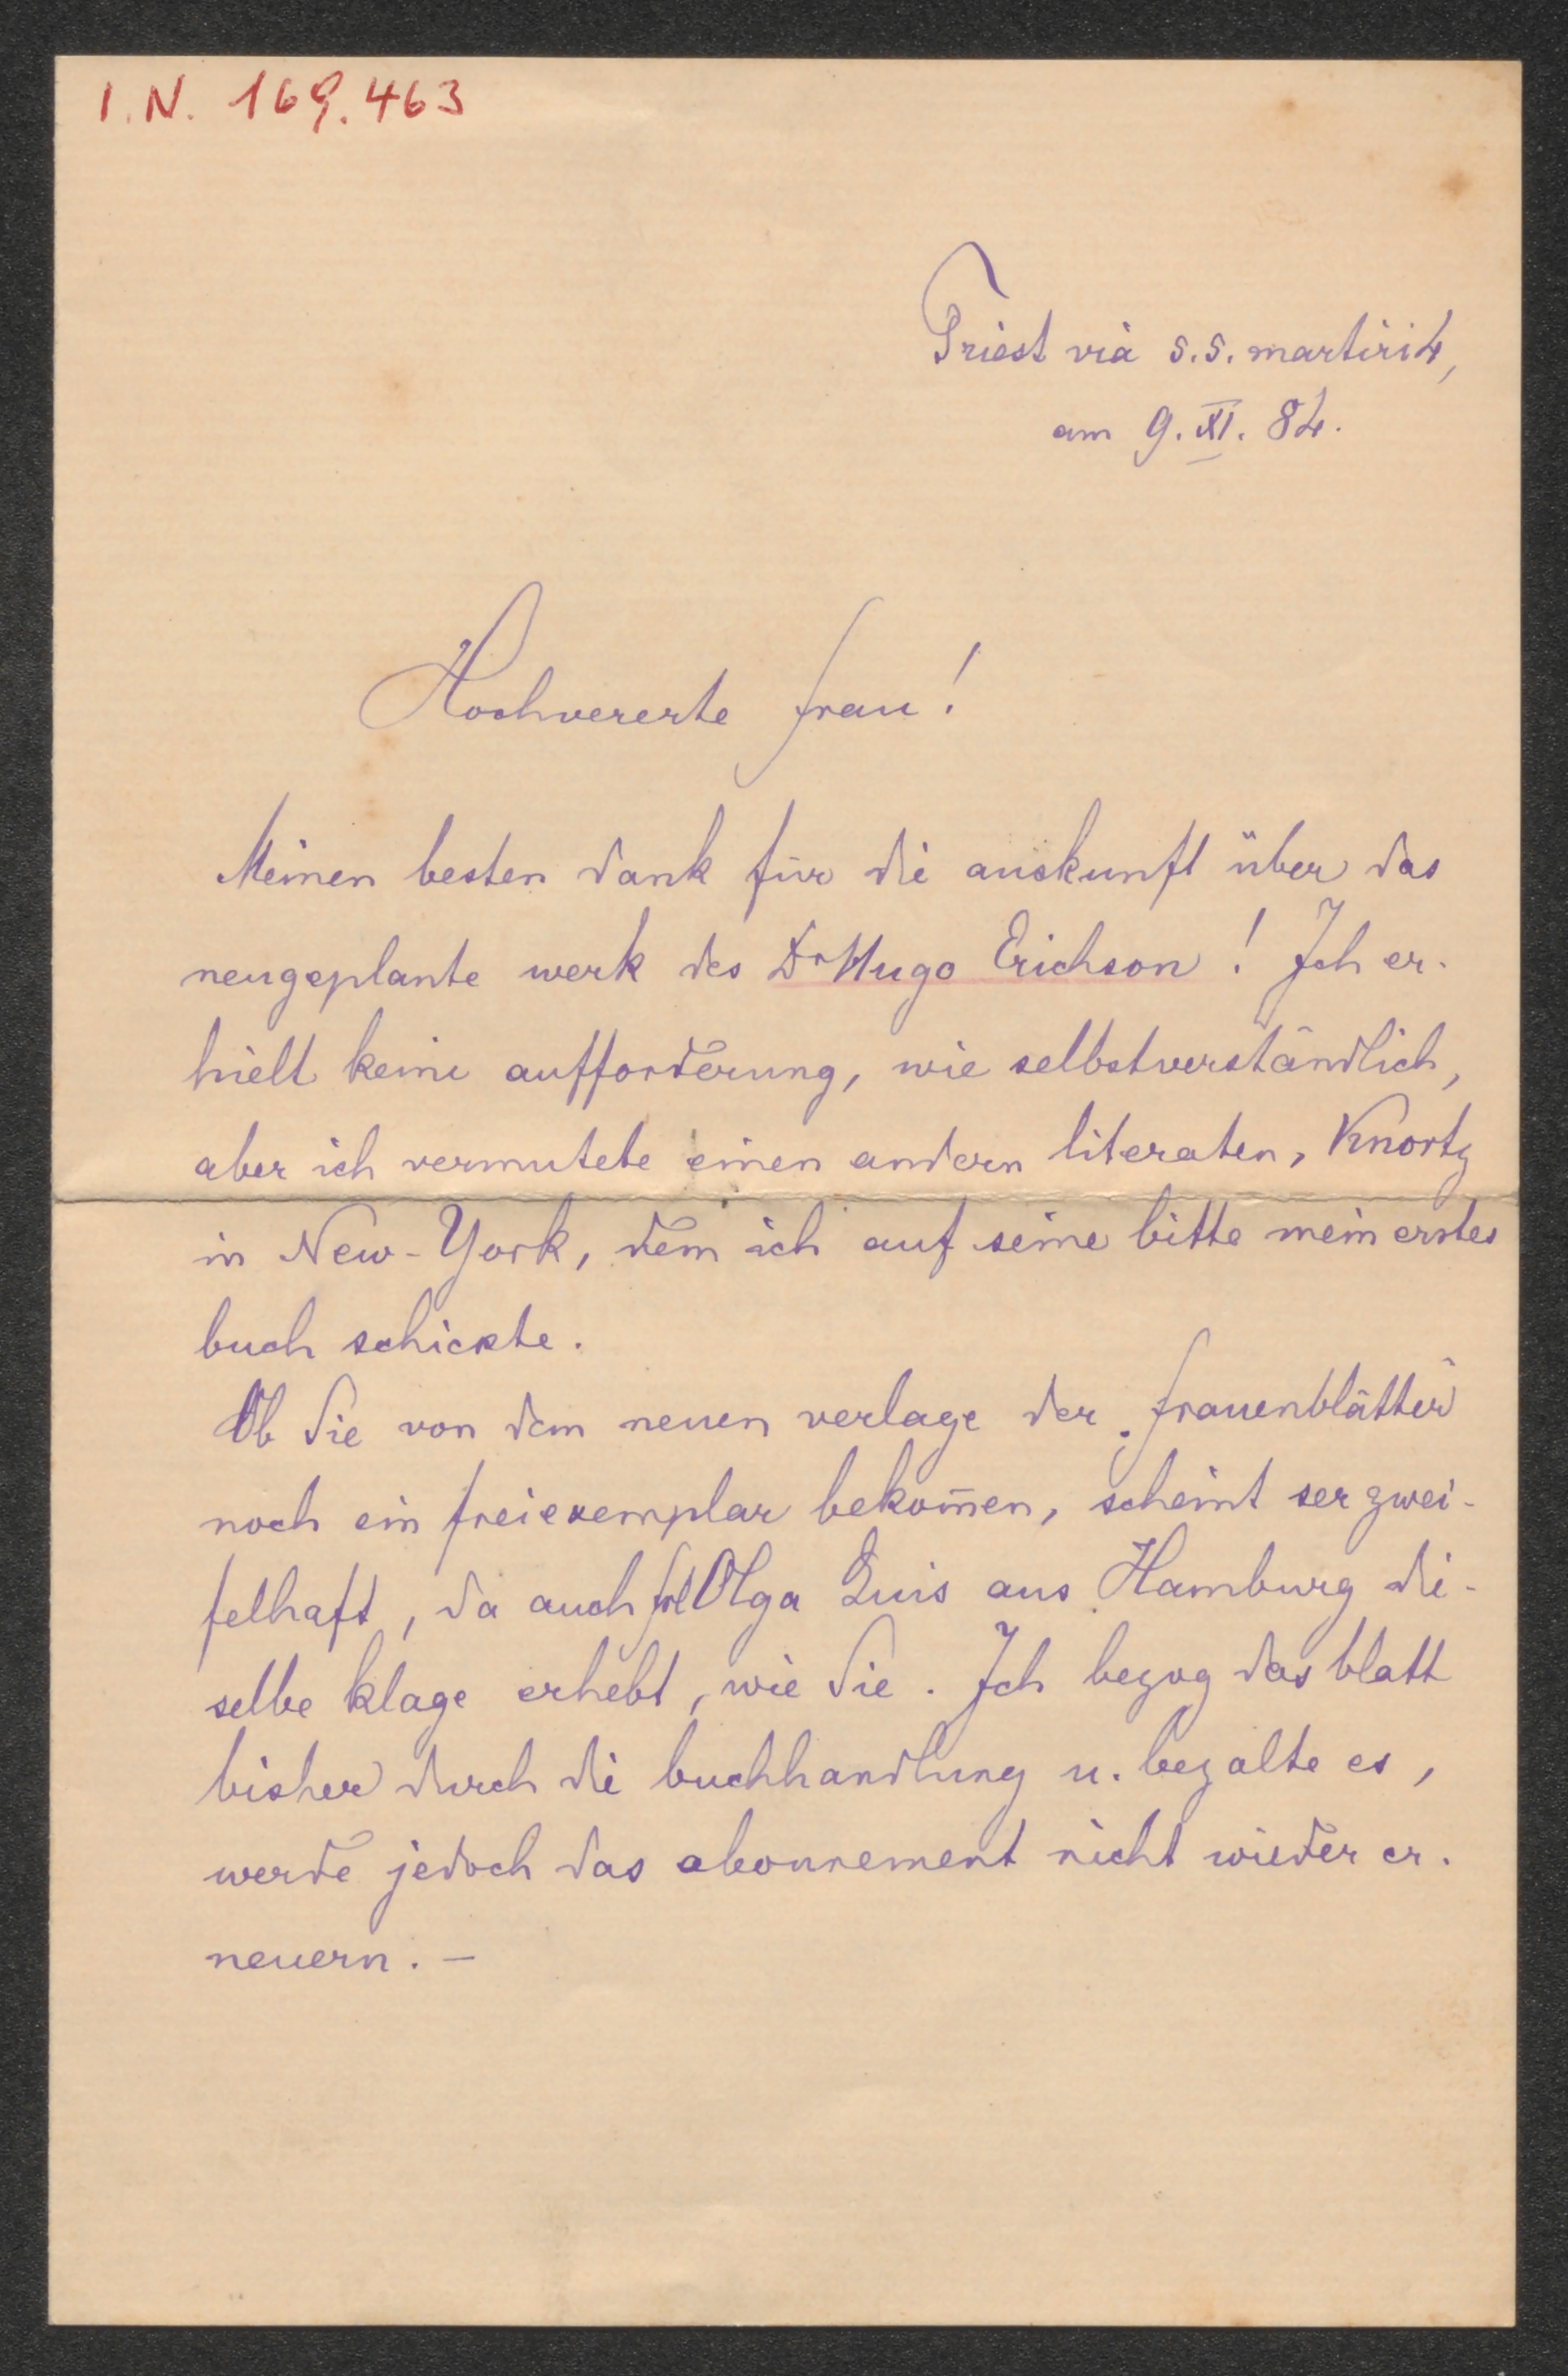 I.N. 169.463
Triest via s.s. martiri 4,
am 9. XI. 84.
Hochvererte frau!
Meinen besten dank für die auskunft über das
neugeplante werk des Dr Hugo Erichson! Ich er-
hielt keine aufforderung, wie selbstverständlich,
aber ich vermutete einen andern literaten, Knortz
in New-York, dem ich auf seine bitte mein erstes
buch schickte.
Ob Sie von dem neuen verlage der frauenblätter
noch ein freiexemplar bekom̄en, scheint ser zwei-
felhaft, da auch frl Olga aus Hamburg die-
selbe klage erhebt, wie Sie. Ich bezog das blatt
bisher durch die buchhandlung u. bezalte es,
werde jedoch das abonnement nicht wieder er-
neuern. –